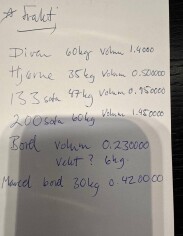 * Frakt
Divan 60kg Volum 1.4000
Hjørne 35kg Volum 0.500000
133 sota 47kg Volum 0.950000
200 sota 60kg Volum 1.450000
Bord Volum 0.230000
Vekt ? 6kg.
Marcel bord 30kg 0.4200000